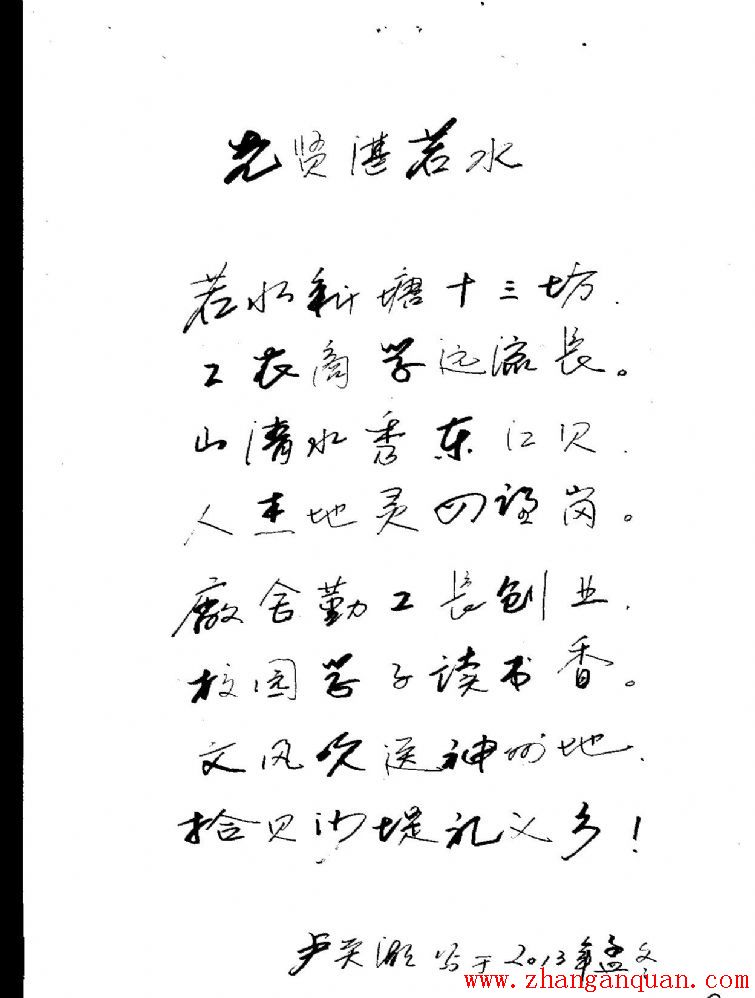 先贤湛若水
若水新塘十三坊.
工农商学远流长。
山清水秀东江贝.
人杰地灵四望岗。
厰舍勤工長创业.
校园学子读书香。
文风吹送神州地.
拾贝沙堤礼义乡！
卢英 写于2013年孟冬
www.zhanganquan.com